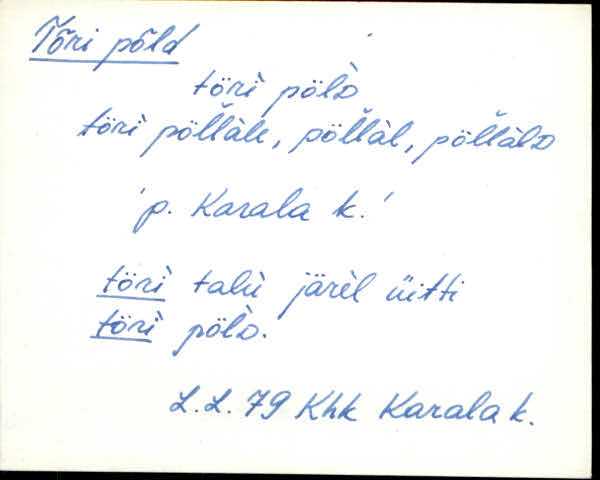 Tõri põld
törì̬ pöl̀D
törì̬ pöl̆làle, pöl̆làl, pöl̆làlD
'p. Karala k.'
törì̬ talù järèl üitti
törì̬ pöl̀D.
L.L. 79 Khk Karala k.